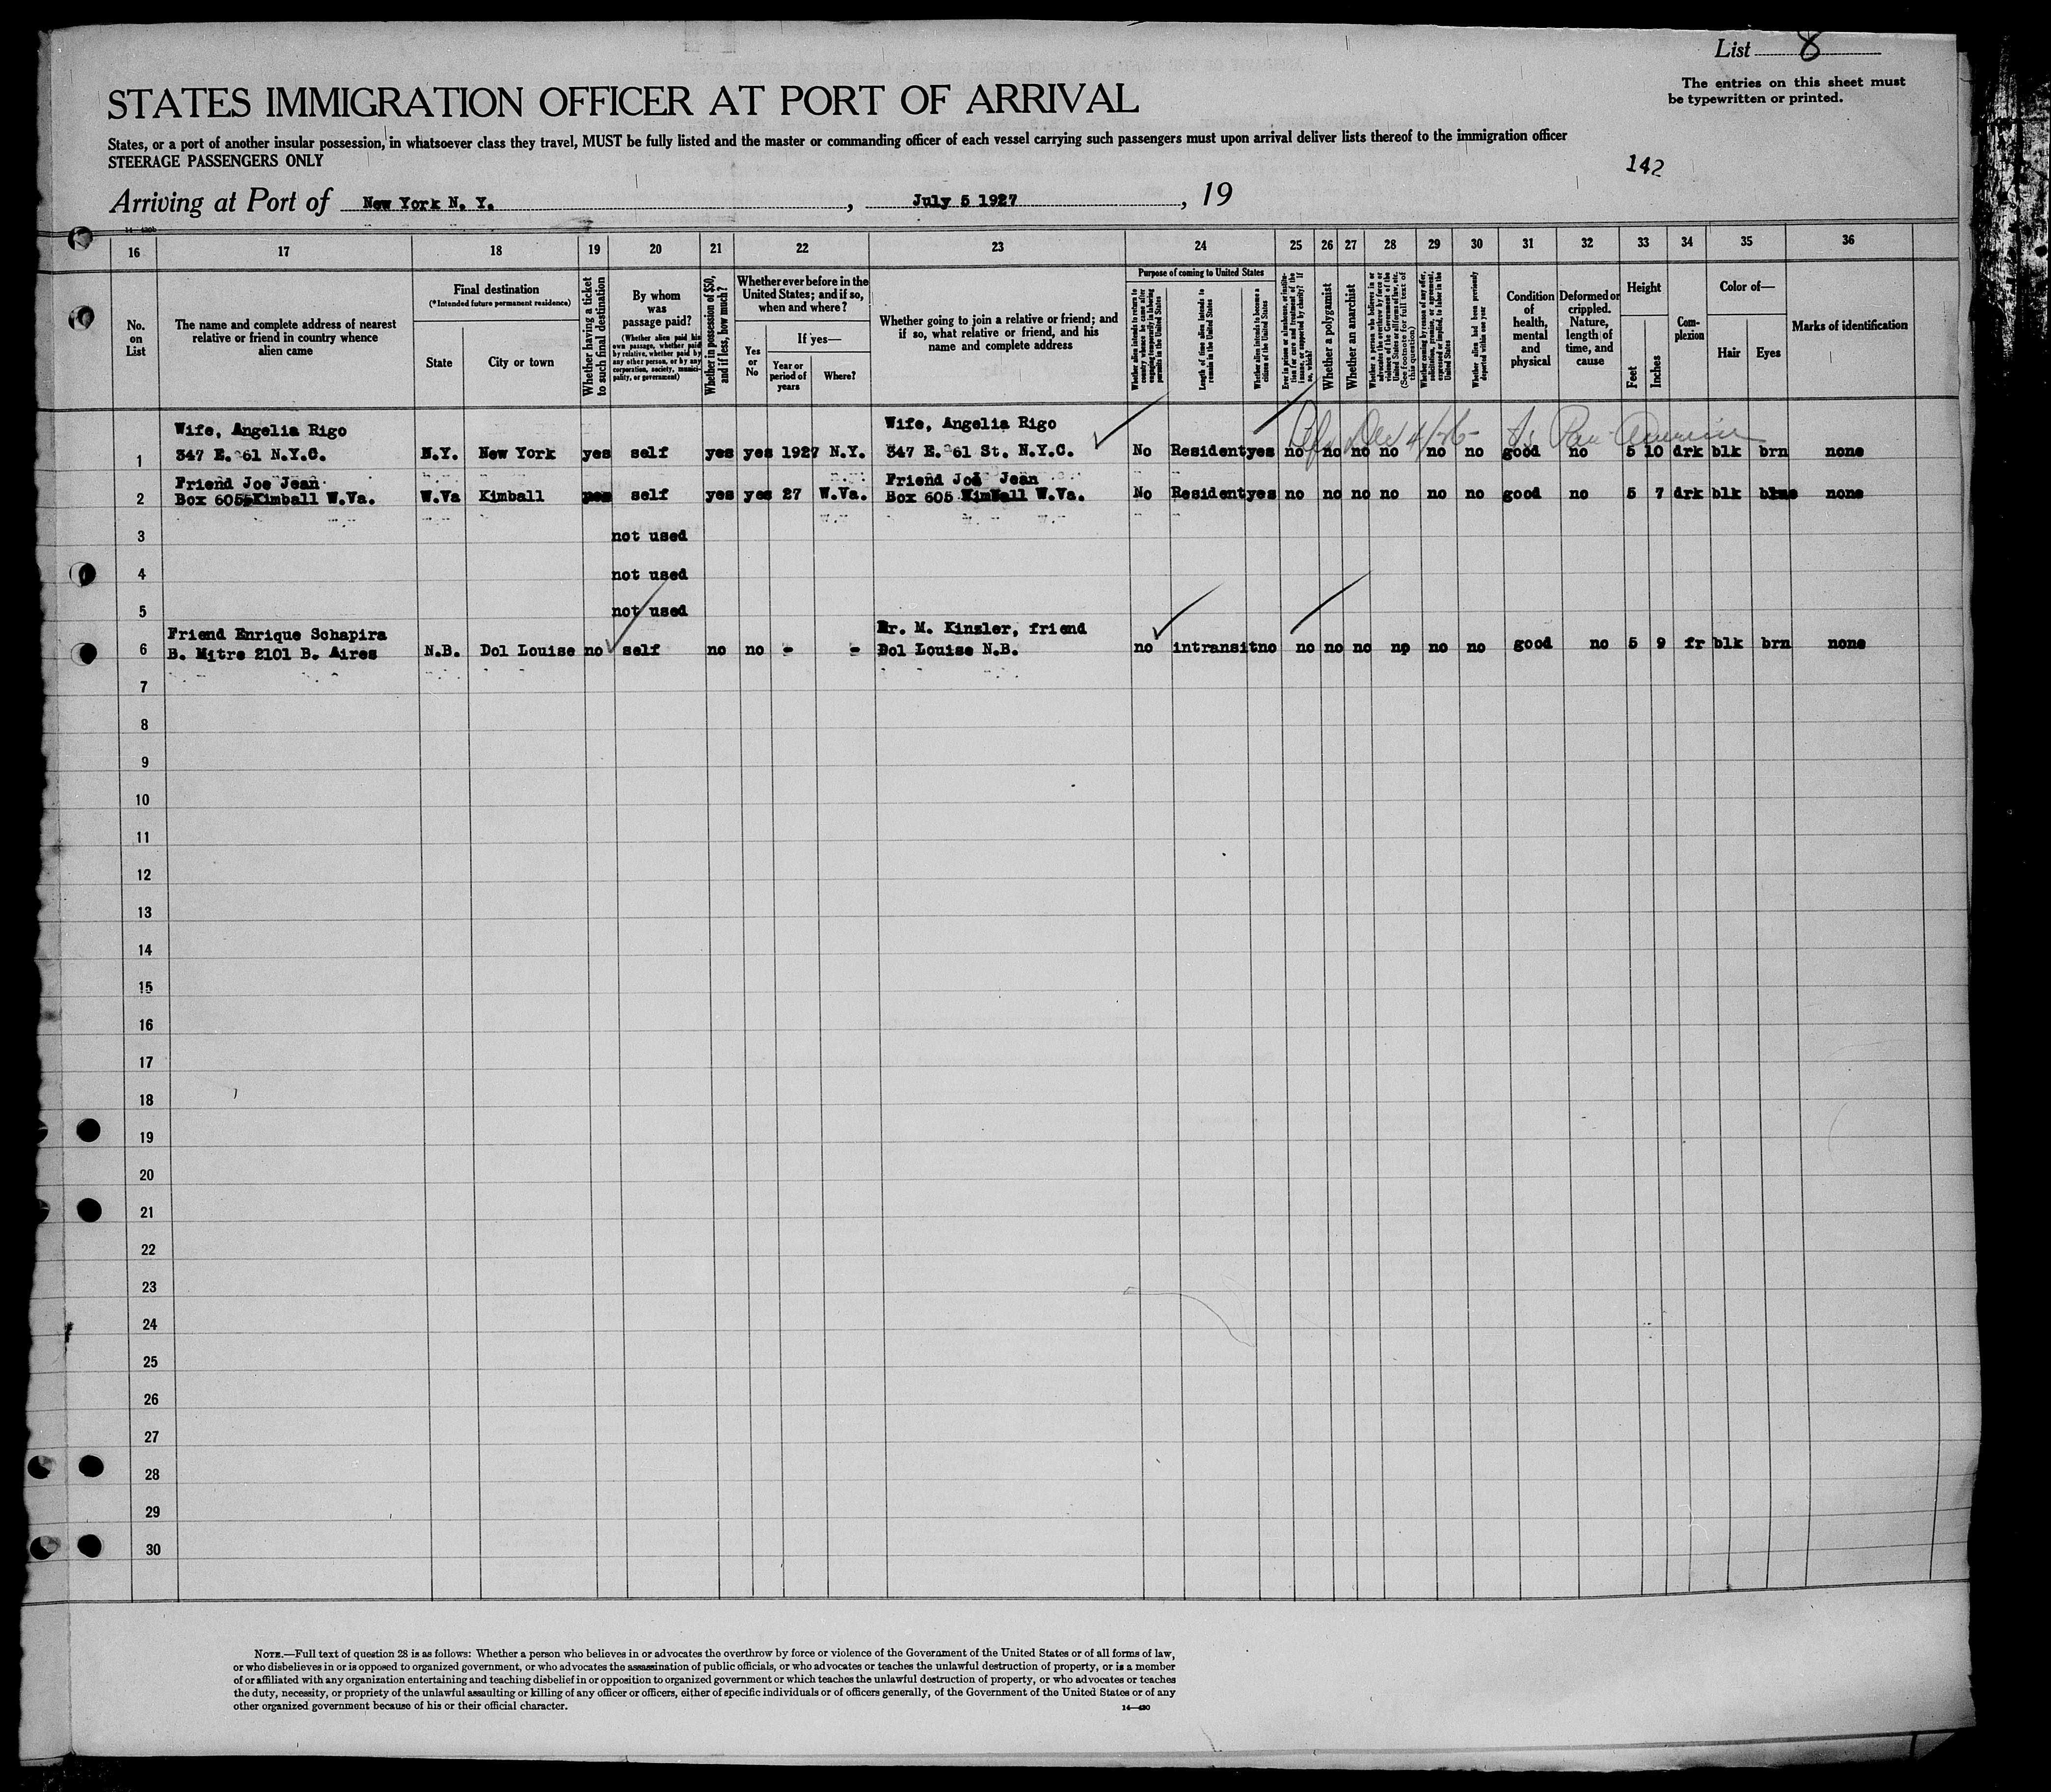 List 8
The entries on this sheet must
be typewritten or printed.
STATES IMMIGRATION OFFICER AT PORT OF ARRIVAL
States, or a port of another insular possession, in whatsoever class they travel, MUST be fully listed and the master or commanding officer of each vessel carrying such passengers must upon arrival deliver lists thereof to the immigration officer
STEERAGE PASSENGERS ONLY
142
Arriving at Port of New York N. Y. , July 5 1927 , 19
16 17 18 19 20 21 22 23 24 25 26 27 28 29 30 31 32 33 34 35 36
No.
on
List
The name and complete address of nearest
relative or friend in country whence
alien came
Final destination
(*Intended future permanent residence)
State
City or town
Whether having a ticket
to such final destination
By whom
was
passage paid?
(Whether alien paid his
own passage, whether paid
by relative, whether paid by
any other person, or by any
corporation, society, munici-
pality, or government)
Whether in possession of $50,
and if less, how much?
Whether ever before in the
United States; and if so,
when and where?
Yes
or
No
If yes—
Year or
period of
years
Where?
Whether going to join a relative or friend; and
if so, what relative or friend, and his
name and complete address
Purpose of coming to United States
Whether alien intends to return to
country whence he came after
engaging temporarily in laboring
pursuits in the United States
Length of time alien intends to
remain in the United States
Whether alien intends to become a
citizen of the United States
Ever in prison or almshouse, or institu-
tion for care and treatment of the
insane, or supported by charity? If
so, which?
Whether a polygamist
Whether an anarchist
Whether a person who believes in or
advocates the overthrow by force or
violence of the Government of the
United States or all forms of law, etc.
(See footnote for full text of
this question)
Whether coming by reason of any offer,
solicitation, promise, or agreement,
expressed or implied, to labor in the
United States
Whether alien had been previously
deported within one year
Condition
of
health,
mental
and
physical
Deformed or
crippled.
Nature,
length of
time, and
cause
Height
Feet
Inches
Com-
plexion
Color of—
Hair
Eyes
Marks of identification
Wife, Angelia Rigo Wife, Angelia Rigo
1 347 E. 61 N.Y.C. N.Y. New York yes self yes yes 1927 N.Y. 347 E. 61 St. N.Y.C. No Resident yes no no no no no no good no 5 10 drk blk brn none
Friend Joe Jean Friend Joe Jean
2 Box 605 Kimball W.Va. W.Va Kimball yes self yes yes 27 W.Va. Box 605 Kimball W.Va. No Resident yes no no no no no no good no 5 7 drk blk none
3 not used
4 not used
5 not used
Friend Enrique Schapira Dr. M. Kinzler, friend
6 B. Mitre 2101 B. Aires N.B. Dol Louise no self no no - - Dol Louise N.B. no intransit no no no no no no no good no 5 9 fr blk brn none
7
8
9
10
11
12
13
14
15
16
17
18
19
20
21
22
23
24
25
26
27
28
29
30
NOTE.—Full text of question 28 is as follows: Whether a person who believes in or advocates the overthrow by force or violence of the Government of the United States or of all forms of law,
or who disbelieves in or is opposed to organized government, or who advocates the assassination of public officials, or who advocates or teaches the unlawful destruction of property, or is a member
of or affiliated with any organization entertaining and teaching disbelief in or opposition to organized government or which teaches the unlawful destruction of property, or who advocates or teaches
the duty, necessity, or propriety of the unlawful assaulting or killing of any officer or officers, either of specific individuals or of officers generally, of the Government of the United States or of any
other organized government because of his or their official character.
14—420